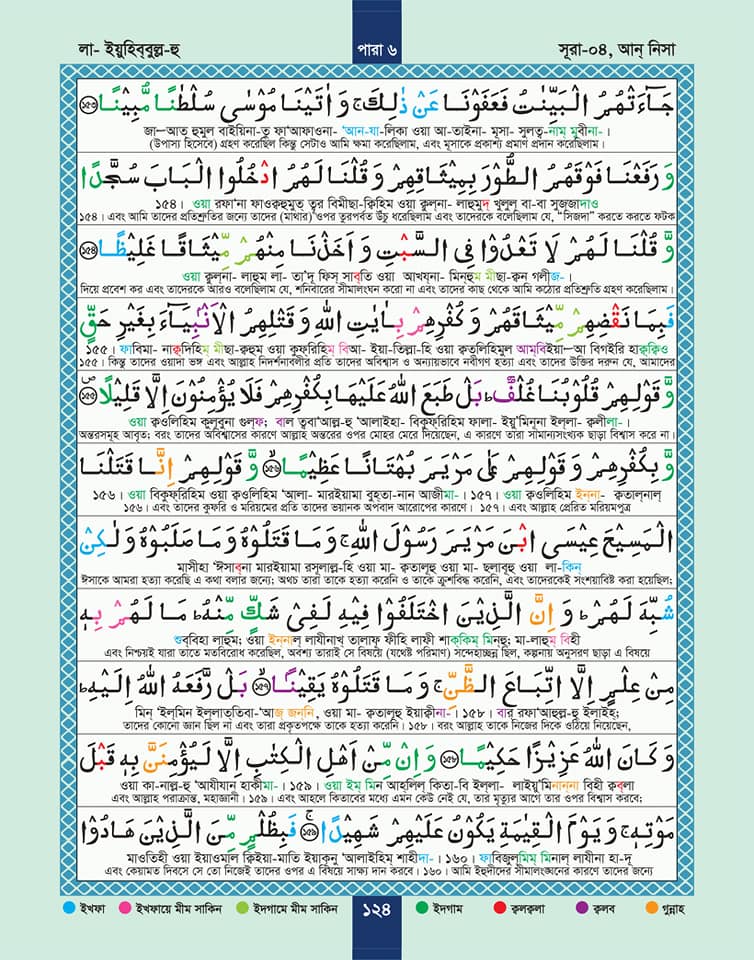 লা- ইয়ুহিব্বুল্ল-হু
পারা ৬
সূরা-০৪, আন্ নিসা
جَآءَتْهُمُ الْبَيِّنٰتُ فَعَفَوْنَا عَنْ ذٰلِكَ ۚ وَاٰتَيْنَا مُوْسٰى سُلْطٰنًا مُّبِيْنًا ﴿১৫৩﴾
জা—আত্ হুমুল বাইয়িনা-তু ফা'আফাওনা- 'আন-যা-লিকা ওয়া আ-তাইনা- মূসা- সুলত্ব-নাম্ মুবীনা- ।
(উপাস্য হিসেবে) গ্রহণ করেছিল কিন্তু সেটাও আমি ক্ষমা করেছিলাম, এবং মূসাকে প্রকাশ্য প্রমাণ প্রদান করেছিলাম।
وَرَفَعْنَا فَوْقَهُمُ الطُّوْرَ بِمِيْثَاقِهِمْ وَقُلْنَا لَهُمُ ادْخُلُوا الْبَابَ سُجَّدًا
১৫৪। ওয়া রফা'না ফাওক্বহুমুত্ব তূর বিমীছা-ক্বিহিম ওয়া কুল্না- লাহুমুদ্ খুলুল্ বা-বা সুজ্জাদাও
১৫৪। এবং আমি তাদের প্রতিশ্রুতির জন্যে তাদের (মাথার) ওপর তুরপর্বত উঁচু ধরেছিলাম এবং তাদেরকে বলেছিলাম যে, “সিজদা” করতে করতে ফটক
وَّقُلْنَا لَهُمْ لَا تَعْدُوْا فِى السَّبْتِ وَاَخَذْنَا مِنْهُمْ مِّيْثَاقًا غَلِيْظًا ﴿১৫৪﴾
ওয়া কুল্না- লাহুম লা- তা'দূ ফিস্ সাব্তি ওয়া আখয্না- মিন্হুম মীছা-ক্বন গলীজ- ।
দিয়ে প্রবেশ কর এবং তাদেরকে আরও বলেছিলাম যে, শনিবারের সীমালংঘন করো না এবং তাদের কাছ থেকে আমি কঠোর প্রতিশ্রুতি গ্রহণ করেছিলাম।
فَبِمَا نَقْضِهِمْ مِّيْثَاقَهُمْ وَكُفْرِهِمْ بِاٰيٰتِ اللّٰهِ وَقَتْلِهِمُ الْاَنْۢبِيَآءَ بِغَيْرِ حَقٍّ
১৫৫। ফাবিমা- নাক্বদিহিম্ মীছা-ক্বহুম ওয়া কুফ্রিহিম্ বিআ- ইয়া-তিল্লা-হি ওয়া ক্বতলিহিমুল আম্বিইয়া—আ বিগইরি হাক্বক্বিও
১৫৫। কিন্তু তাদের ওয়াদা ভঙ্গ এবং আল্লাহ নিদর্শনাবলীর প্রতি তাদের অবিশ্বাস ও অন্যায়ভাবে নবীগণ হত্যা এবং তাদের উক্তির দরুন যে, আমাদের
وَّقَوْلِهِمْ قُلُوْبُنَا غُلْفٌ ؕ بَلْ طَبَعَ اللّٰهُ عَلَيْهَا بِكُفْرِهِمْ فَلَا يُؤْمِنُوْنَ اِلَّا قَلِيْلًا ۪﴿১৫৫﴾
ওয়া ক্বওলিহিম কুলূবুনা গুলফ; বাল্ ত্ববা'আল্ল-হু 'আলাইহা- বিকুফ্রিহিম ফালা- ইয়ু'মিনূনা ইল্লা- ক্বলীলা- ।
অন্তরসমূহ আবৃত; বরং তাদের অবিশ্বাসের কারণে আল্লাহ অন্তরের ওপর মোহর মেরে দিয়েছেন, এ কারণে তারা সামান্যসংখ্যক ছাড়া বিশ্বাস করে না।
وَّبِكُفْرِهِمْ وَقَوْلِهِمْ عَلٰى مَرْيَمَ بُهْتَانًا عَظِيْمًا ﴿১৫৬﴾ وَّقَوْلِهِمْ اِنَّا قَتَلْنَا
১৫৬। ওয়া বিকুফ্রিহিম ওয়া ক্বওলিহিম 'আলা- মারইয়ামা বুহ্তা-নান আজীমা- । ১৫৭। ওয়া ক্বওলিহিম ইননা- ক্বতাল্নাল্
১৫৬। এবং তাদের কুফরি ও মরিয়মের প্রতি তাদের ভয়ানক অপবাদ আরোপের কারণে। ১৫৭। এবং আল্লাহ প্রেরিত মরিয়মপুত্র
الْمَسِيْحَ عِيْسَى ابْنَ مَرْيَمَ رَسُوْلَ اللّٰهِ ۚ وَمَا قَتَلُوْهُ وَمَا صَلَبُوْهُ وَلٰكِنْ
মাসীহা 'ঈসাব্না মারইয়ামা রসূলাল্ল-হি ওয়া মা- ক্বতালূহু ওয়া মা- ছলাবূহু ওয়া লা-কিন্
ঈসাকে আমরা হত্যা করেছি এ কথা বলার জন্যে; অথচ তারা তাকে হত্যা করেনি ও তাকে ক্রুশবিদ্ধ করেনি, এবং তাদেরকেই সংশয়াবিষ্ট করা হয়েছিল;
شُبِّهَ لَهُمْ ؕ وَاِنَّ الَّذِيْنَ اخْتَلَفُوْا فِيْهِ لَفِىْ شَكٍّ مِّنْهُ ؕ مَا لَهُمْ بِهٖ
শুব্বিহা লাহুম; ওয়া ইননাল্ লাযীনাখ্ তালাফূ ফীহি লাফী শাক্কিম্ মিনহু; মা-লাহুম্ বিহী
এবং নিশ্চয়ই যারা তাতে মতবিরোধ করেছিল, অবশ্য তারাই সে বিষয়ে (যথেষ্ট পরিমাণ) সন্দেহাচ্ছন্ন ছিল, কল্পনায় অনুসরণ ছাড়া এ বিষয়ে
مِنْ عِلْمٍ اِلَّا اتِّبَاعَ الظَّنِّ ۚ وَمَا قَتَلُوْهُ يَقِيْنًا ﴿১৫৭﴾ بَلْ رَّفَعَهُ اللّٰهُ اِلَيْهِ ؕ
মিন্ 'ইল্মিন ইল্লাত্তিবা-'আজ্ জন্নি, ওয়া মা- ক্বতালূহু ইয়াক্বীনা- । ১৫৮। বার্ রফা'আহুল্ল-হু ইলাইহ;
তাদের কোনো জ্ঞান ছিল না এবং তারা প্রকৃতপক্ষে তাকে হত্যা করেনি। ১৫৮। বরং আল্লাহ তাকে নিজের দিকে ওঠিয়ে নিয়েছেন,
وَكَانَ اللّٰهُ عَزِيْزًا حَكِيْمًا ﴿১৫৮﴾ وَاِنْ مِّنْ اَهْلِ الْكِتٰبِ اِلَّا لَيُؤْمِنَنَّ بِهٖ قَبْلَ
ওয়া কা-নাল্ল-হু 'আযীযান্ হাকীমা- । ১৫৯। ওয়া ইম্ মিন আহ্লিল্ কিতা-বি ইল্লা- লাইয়ু'মিনান্না বিহী ক্বব্লা
এবং আল্লাহ পরাক্রান্ত, মহাজ্ঞানী। ১৫৯। এবং আহলে কিতাবের মধ্যে এমন কেউ নেই যে, তার মৃত্যুর আগে তার ওপর বিশ্বাস করবে;
مَوْتِهٖ ۚ وَيَوْمَ الْقِيٰمَةِ يَكُوْنُ عَلَيْهِمْ شَهِيْدًا ۚ﴿১৫৯﴾ فَبِظُلْمٍ مِّنَ الَّذِيْنَ هَادُوْا
মাওতিহী ওয়া ইয়াওমাল্ ক্বিইয়া-মাতি ইয়াকূনু 'আলাইহিম্ শাহীদা- । ১৬০। ফাবিজুল্মিম্ মিনাল্ লাযীনা হা-দূ
এবং কেয়ামত দিবসে সে তো নিজেই তাদের ওপর এ বিষয়ে সাক্ষ্য দান করবে। ১৬০। আমি ইহুদীদের সীমালংঘনের কারণে তাদের জন্যে
ইখফা
ইখফায়ে মীম সাকিন
ইদগামে মীম সাকিন
১২৪
ইদগাম
ক্বলক্বলা
ক্বলব
গুন্নাহ